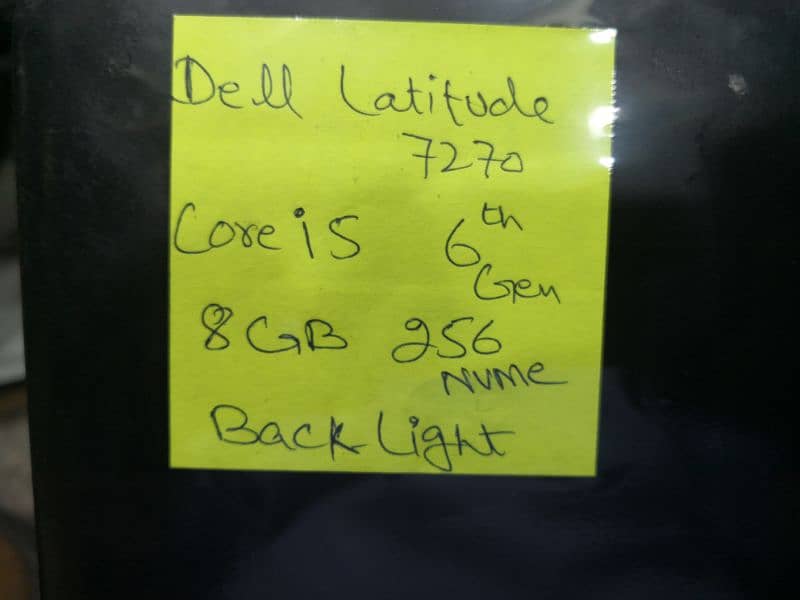 Dell Latitude
7270
Core i5 6th
Gen
8GB 256
NVMe
BackLight